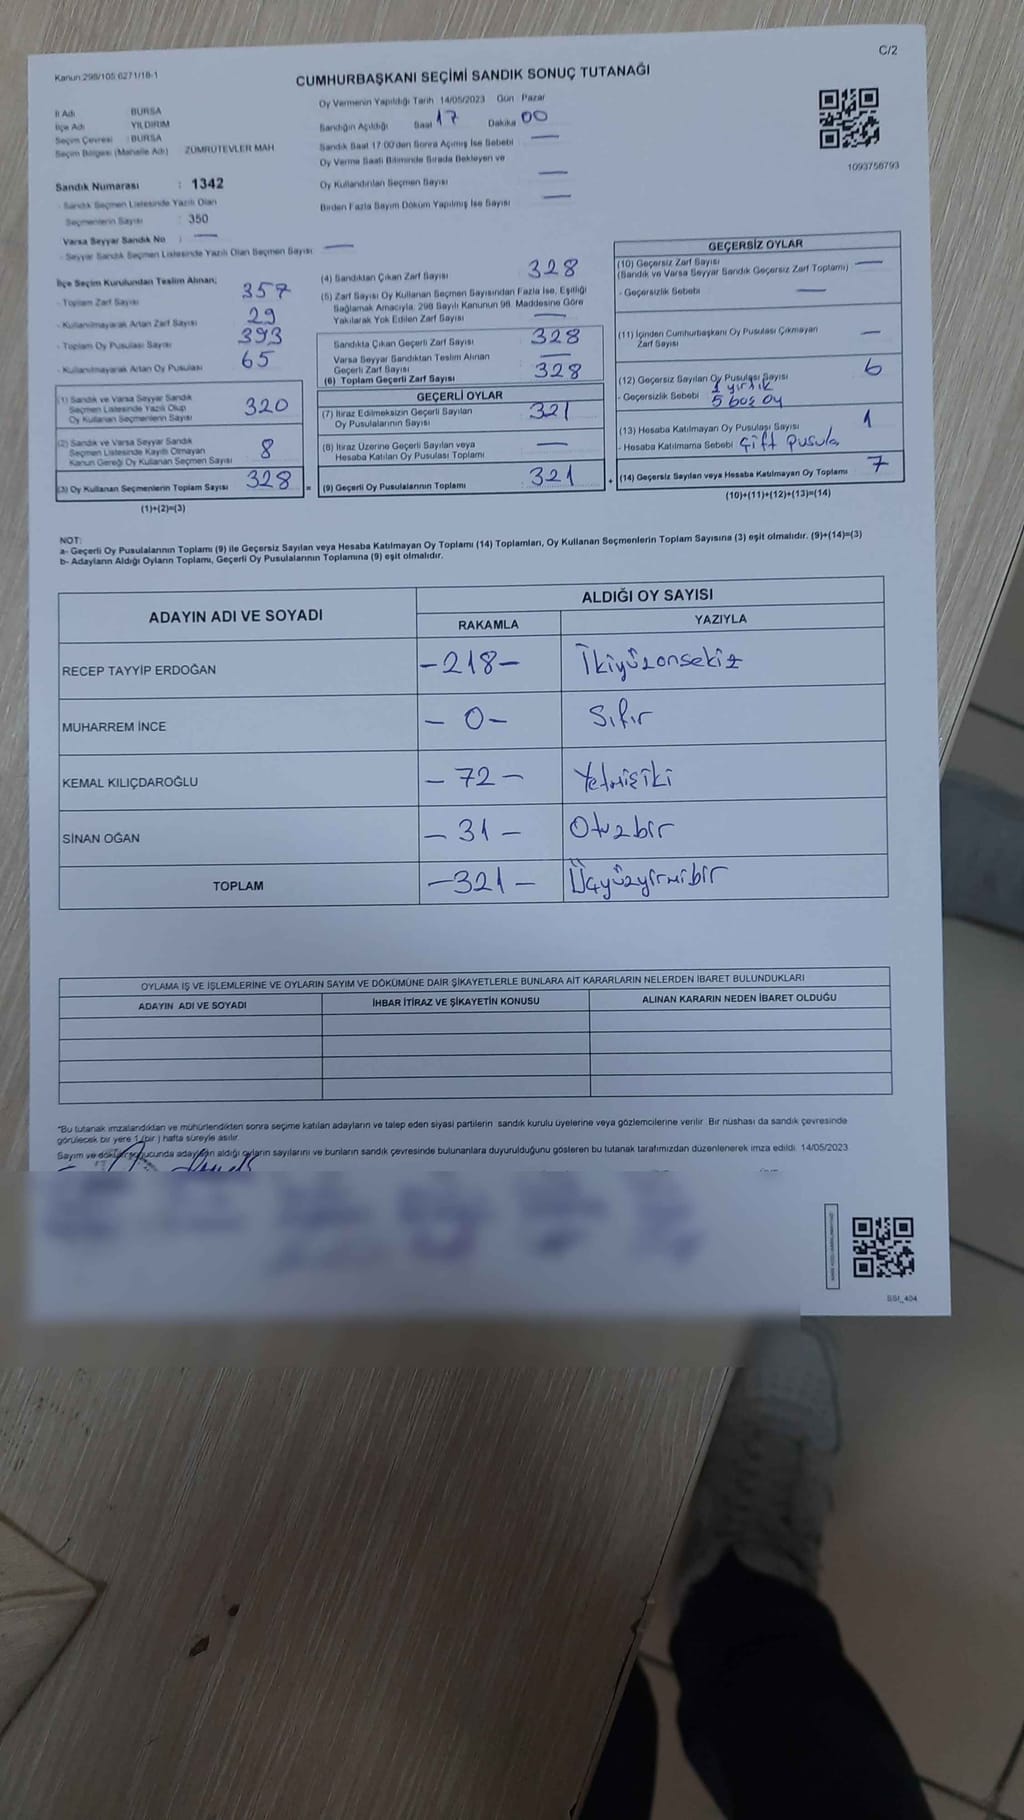 C/2
Kanun:298/105 6271/18-1
CUMHURBAŞKANI SEÇİMİ SANDIK SONUÇ TUTANAĞI
İl Adı BURSA
İlçe Adı YILDIRIM
Seçim Çevresi : BURSA
Seçim Bölgesi (Mahalle Adı) ZÜMRÜTEVLER MAH.
Oy Vermenin Yapıldığı Tarih 14/05/2023 Gün Pazar
Sandığın Açıldığı Saat 17 Dakika 00
Sandık Saat 17:00'den Sonra Açılmış İse Sebebi —
Oy Verme Saati Bitiminde Sırada Bekleyen ve
Oy Kullandırılan Seçmen Sayısı —
Birden Fazla Sayım Döküm Yapılmış İse Sayısı —
1093756793
Sandık Numarası : 1342
- Sandık Seçmen Listesinde Yazılı Olan
Seçmenlerin Sayısı : 350
Varsa Seyyar Sandık No : —
- Seyyar Sandık Seçmen Listesinde Yazılı Olan Seçmen Sayısı —
İlçe Seçim Kurulundan Teslim Alınan;
- Toplam Zarf Sayısı 357
- Kullanılmayarak Artan Zarf Sayısı 29
- Toplam Oy Pusulası Sayısı 393
- Kullanılmayarak Artan Oy Pusulası 65
(1) Sandık ve Varsa Seyyar Sandık
Seçmen Listesinde Yazılı Olup
Oy Kullanan Seçmenlerin Sayısı 320
(2) Sandık ve Varsa Seyyar Sandık
Seçmen Listesinde Kayıtlı Olmayan
Kanun Gereği Oy Kullanan Seçmen Sayısı 8
(3) Oy Kullanan Seçmenlerin Toplam Sayısı 328 =
(1)+(2)=(3)
(4) Sandıktan Çıkan Zarf Sayısı 328
(5) Zarf Sayısı Oy Kullanan Seçmen Sayısından Fazla İse, Eşitliği
Sağlamak Amacıyla, 298 Sayılı Kanunun 98. Maddesine Göre
Yakılarak Yok Edilen Zarf Sayısı —
Sandıkta Çıkan Geçerli Zarf Sayısı 328
Varsa Seyyar Sandıktan Teslim Alınan
Geçerli Zarf Sayısı —
(6) Toplam Geçerli Zarf Sayısı 328
GEÇERLİ OYLAR
(7) İtiraz Edilmeksizin Geçerli Sayılan
Oy Pusulalarının Sayısı 321
(8) İtiraz Üzerine Geçerli Sayılan veya
Hesaba Katılan Oy Pusulası Toplamı —
(9) Geçerli Oy Pusulalarının Toplamı 321 +
GEÇERSİZ OYLAR
(10) Geçersiz Zarf Sayısı —
(Sandık ve Varsa Seyyar Sandık Geçersiz Zarf Toplamı)
- Geçersizlik Sebebi —
(11) İçinden Cumhurbaşkanı Oy Pusulası Çıkmayan
Zarf Sayısı —
(12) Geçersiz Sayılan Oy Pusulası Sayısı 6
- Geçersizlik Sebebi 1 yırtık
5 boş oy
(13) Hesaba Katılmayan Oy Pusulası Sayısı 1
- Hesaba Katılmama Sebebi Çift Pusula
(14) Geçersiz Sayılan veya Hesaba Katılmayan Oy Toplamı 7
(10)+(11)+(12)+(13)=(14)
NOT:
a- Geçerli Oy Pusulalarının Toplamı (9) ile Geçersiz Sayılan veya Hesaba Katılmayan Oy Toplamı (14) Toplamları, Oy Kullanan Seçmenlerin Toplam Sayısına (3) eşit olmalıdır. (9)+(14)=(3)
b- Adayların Aldığı Oyların Toplamı, Geçerli Oy Pusulalarının Toplamına (9) eşit olmalıdır.
ADAYIN ADI VE SOYADI
ALDIĞI OY SAYISI
RAKAMLA YAZIYLA
RECEP TAYYİP ERDOĞAN -218- İkiyüzonsekiz
MUHARREM İNCE - 0 - Sıfır
KEMAL KILIÇDAROĞLU - 72 - Yetmişiki
SİNAN OĞAN - 31 - Otuzbir
TOPLAM -321- Üçyüzyirmibir
OYLAMA İŞ VE İŞLEMLERİNE VE OYLARIN SAYIM VE DÖKÜMÜNE DAİR ŞİKAYETLERLE BUNLARA AİT KARARLARIN NELERDEN İBARET BULUNDUKLARI
ADAYIN ADI VE SOYADI İHBAR İTİRAZ VE ŞİKAYETİN KONUSU ALINAN KARARIN NEDEN İBARET OLDUĞU
"Bu tutanak imzalandıktan ve mühürlendikten sonra seçime katılan adayların ve talep eden siyasi partilerin sandık kurulu üyelerine veya gözlemcilerine verilir. Bir nüshası da sandık çevresinde
görülecek bir yere 1 (bir ) hafta süreyle asılır.
Sayım ve döküm sonucunda adayların aldığı oyların sayılarını ve bunların sandık çevresinde bulunanlara duyurulduğunu gösteren bu tutanak tarafımızdan düzenlenerek imza edildi. 14/05/2023